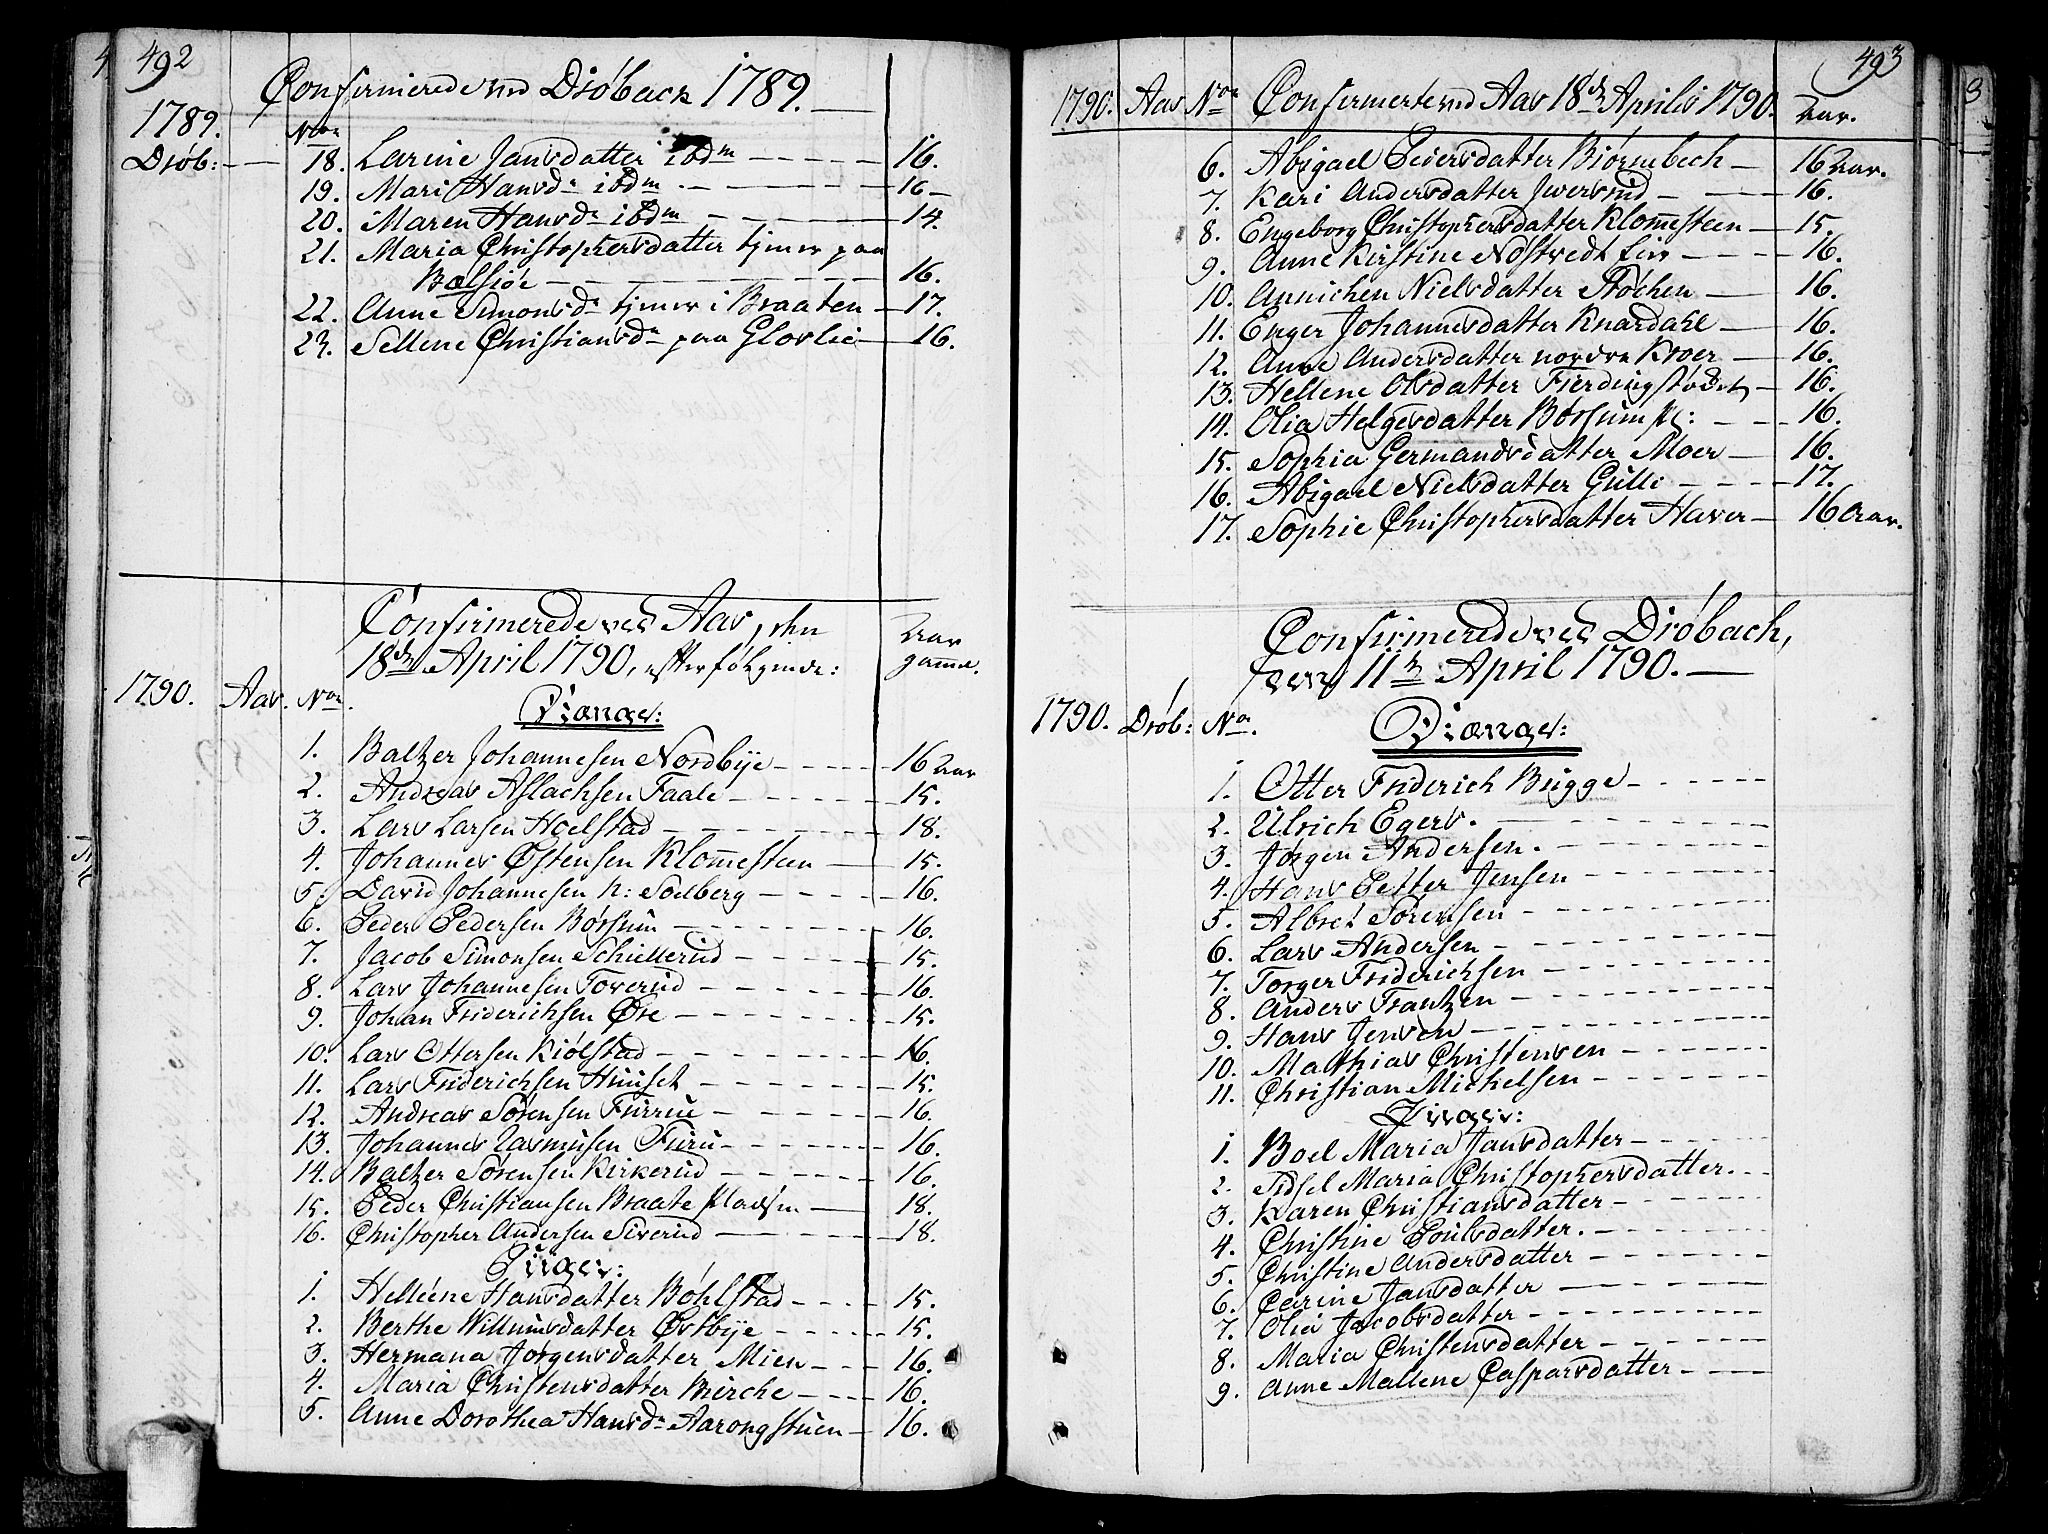 492
Confirmerede ved Drøback 1789.
1789. Nor
Drøb: 18. Larine Jansdatter ibdm 16.
19. Mari Hansdr ibdm 16
20. Maren Hansdr ibdm 14.
21. Maria Christophersdatter tjener paa
Bælsiøe 16.
22. Anne Simonsdr tjener i Braaten 17.
23. Sellene Christiansdr paa Glorlie 16.
Confirmerede ved Aas, den
18de April 1790, efterfølgende:
Aar gamml.
1790. Aas. Nor.
Drænge:
1. Baltzer Johannesen Nordbye 16 Aar
2. Andreas Aslachsen Faale 15.
3. Lars Larsen Hoelstad 18.
4. Johannes Østensen Klommesteen 15.
5. David Johannesen N: Solberg 16.
6. Peder Pedersen Børsum 16.
7. Jacob Simonsen Schiellerud 15.
8. Lars Johannesen Toverud 16.
9. Johan Friderichsen Øre 15.
10. Lars Ottersen Kiølstad 16.
11. Lars Friderichsen Huuset 15.
12. Andreas Sørensen Furrue 16.
13. Johannes Rasmusen Furu 16.
14. Baltzer Sørensen Kirkerud 16.
15. Peder Christiansen Braate pladsen 18.
16. Christopher Andersen Siverud 18.
Piger:
1. Hellene Hansdatter Bøhlstad 15.
2. Berthe Willumsdatter Østbye 15.
3. Hermana Jørgensdatter Mien 16.
4. Maria Christensdatter Birche 16.
5. Anne Dorothea Hansdr Aarongstuen 16.
493
1790. Aas Nor Confirmerte ved Aas 18de Aprilis 1790. Aar.
6. Abigael Pedersdatter Biørnebech 16 Aar.
7. Kari Andersdatter Iversrud 16.
8. Engeborg Christophersdatter Klommesteen 15.
9. Anne Kirstine Nøstvedt Eie 16.
10. Annichen Nielsdatter Støchen 16.
11. Enger Johannesdatter Knardahl 16.
12. Anne Andersdatter nordre Kroer 16.
13. Hellene Olsdatter Fierdingstødet 16.
14. Olia Helgesdatter Børsum pl: 16.
15. Sophia Germandsdatter Moer 16.
16. Abigael Nielsdatter Gulli 17.
17. Sophie Christophersdatter Haver 16 Aar.
Confirmerede ved Drøbach,
den 11te April 1790.
1790. Drøb: Nor.
Drænge:
1. Otter Friderich Bugge
2. Ulrich Egers.
3. Jørgen Andersen.
4. Hans Petter Jensen
5. Albret Sørensen
6. Lars Andersen
7. Torger Friderichsen
8. Anders Frantzen
9. Hans Jensen
10. Mathias Christensen
11. Christian Michelsen
Piger:
1. Boel Maria Jansdatter
2. Sidsel Maria Christophersdatter.
3. Karen Christiansdatter
4. Christine Poulsdatter.
5. Christine Andersdatter
6. Carine Jansdatter
7. Olia Jacobsdatter
8. Maria Christensdatter
9. Anne Mallene Caspersdatter